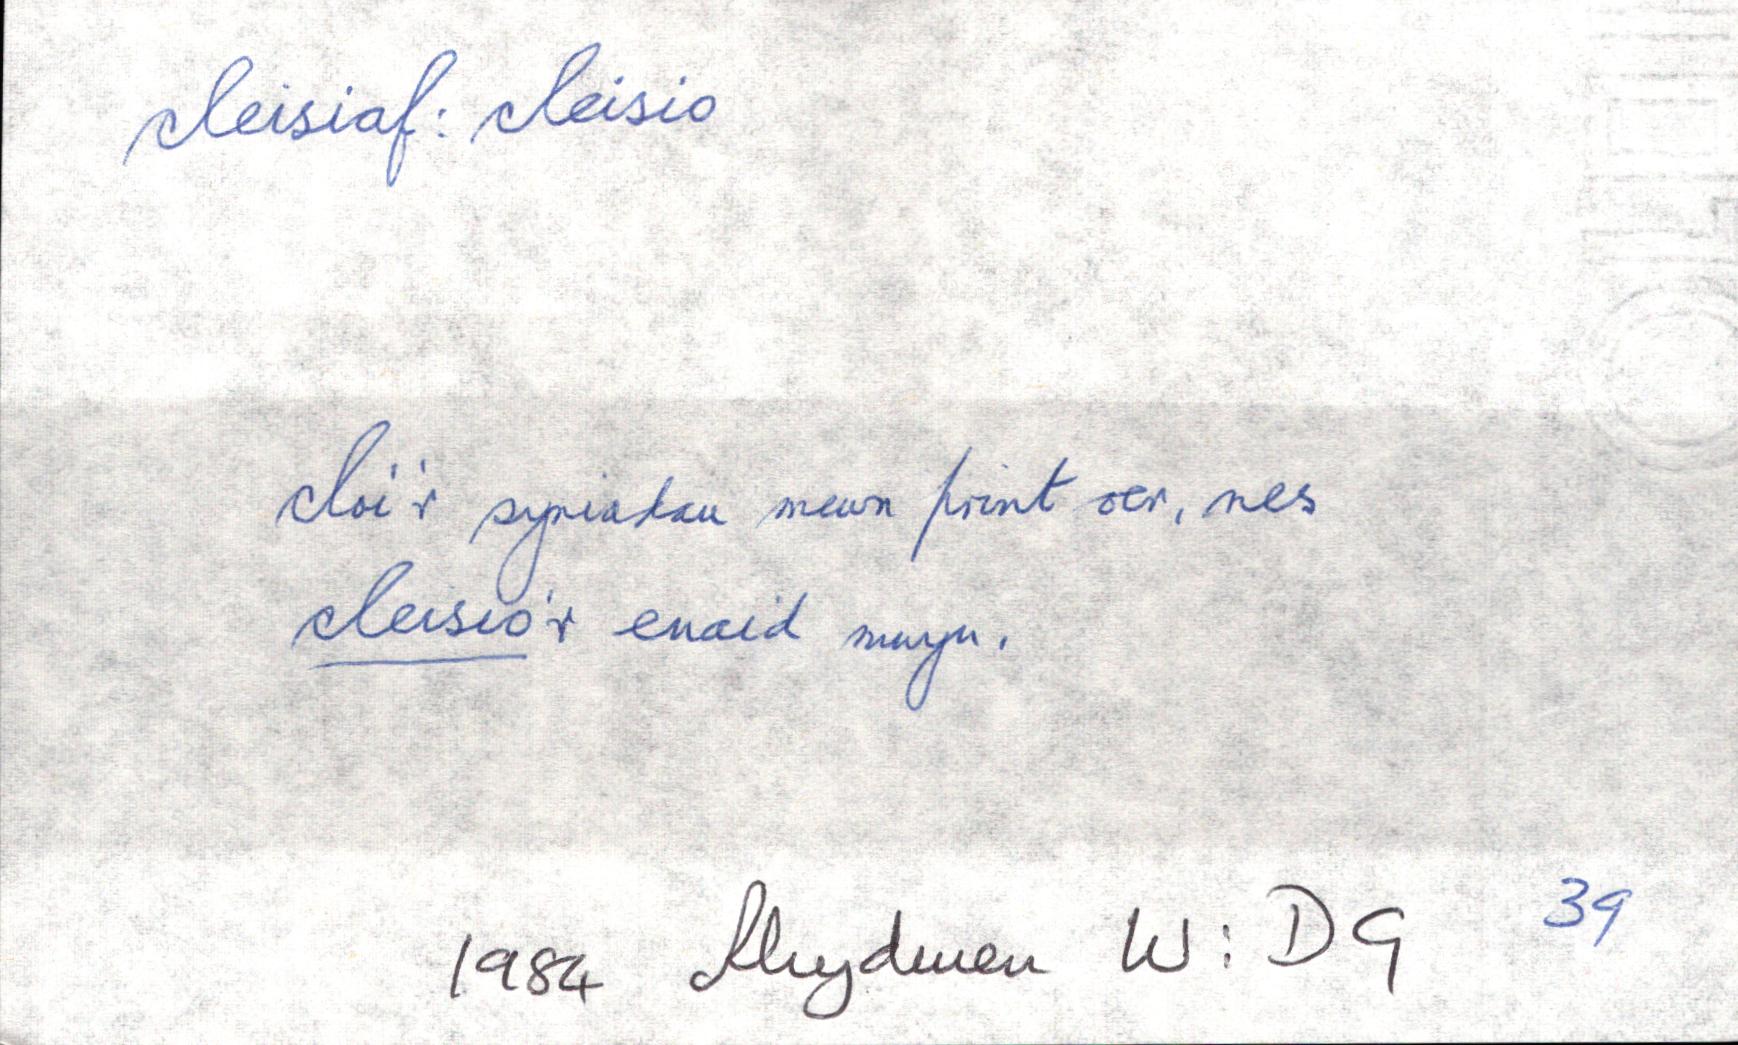 cleisiaf: cleisio
cloi'r syniadau mewn print oer, nes
cleisio'r enaid mwyn.
1984 Rhydwen W: DG 39